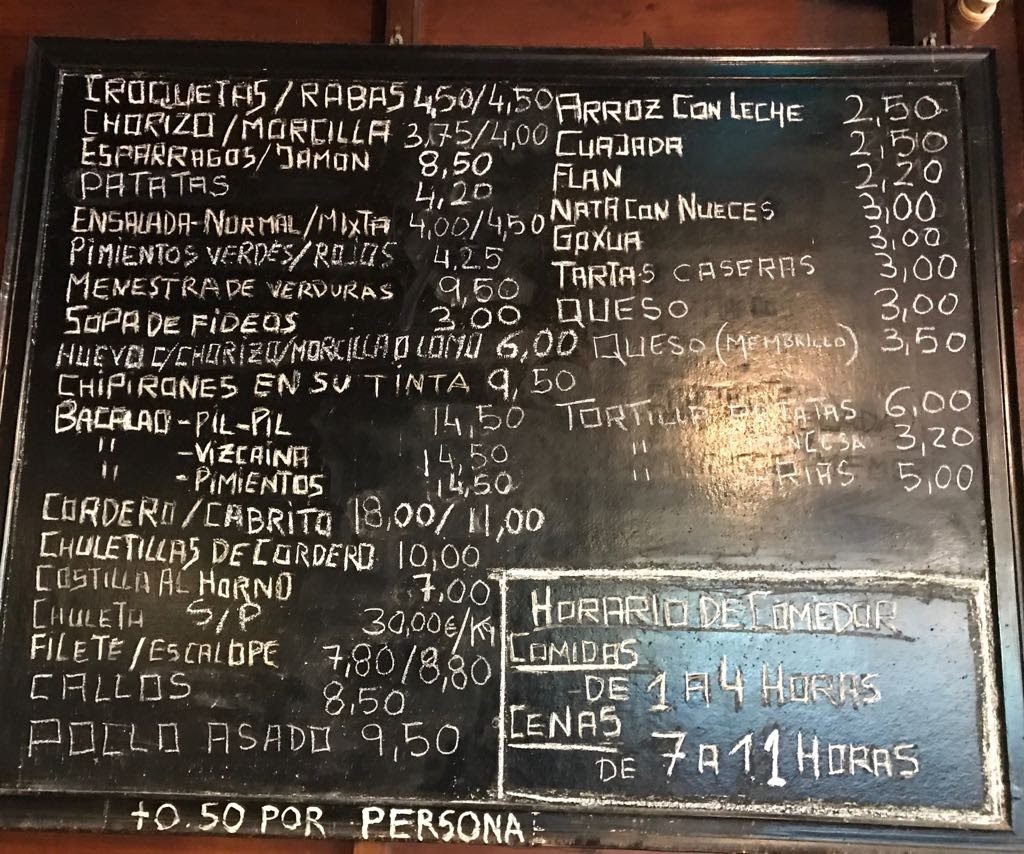 CROQUETAS/RABAS 4,50/4,50
CHORIZO/MORCILLA 3,75/4,00
ESPARRAGOS/JAMON 8,50
PATATAS 4,20
ENSALADA-NORMAL/MIXTA 4,00/4,50
PIMIENTOS VERDES/ROJOS 4,25
MENESTRA DE VERDURAS 9,50
SOPA DE FIDEOS 3,00
HUEVO C/CHORIZO/MORCILLA O LOMO 6,00
CHIPIRONES EN SU TINTA 9,50
BACALAO-PIL-PIL 14,50
" -VIZCAINA 14,50
" -PIMIENTOS 14,50
CORDERO/CABRITO 18,00/11,00
CHULETILLAS DE CORDERO 10,00
COSTILLA AL HORNO 7,00
CHULETA S/P 30,00€/Kg
FILETE/ESCALOPE 7,80/8,80
CALLOS 8,50
POLLO ASADO 9,50
ARROZ CON LECHE 2,50
CUAJADA 2,50
FLAN 2,20
NATA CON NUECES 3,00
GOXUA 3,00
TARTAS CASERAS 3,00
QUESO 3,00
QUESO (MEMBRILLO) 3,50
TORTILLA PATATAS 6,00
" 3,20
" 5,00
HORARIO DE COMEDOR
COMIDAS
DE 1 A 4 HORAS
CENAS
DE 7 A 11 HORAS
+0.50 POR PERSONA